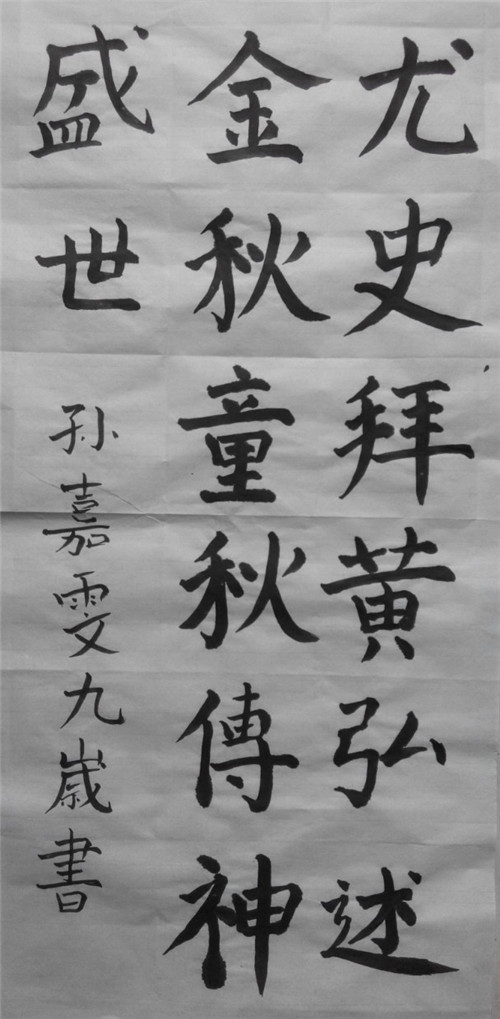 尤史拜黄弘述
金秋童秋傳神
盛世
孙嘉雯九歲書